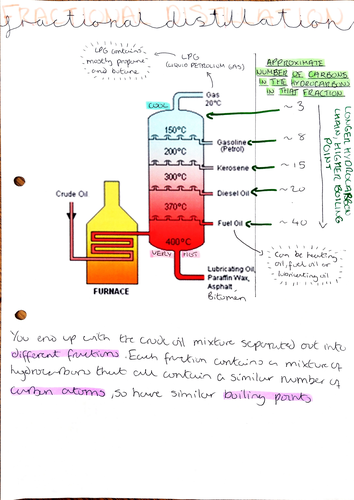 FRACTIONAL DISTILLATION
fractional distillation
LPG contains
mostly propane
and butane
LPG
(LIQUID PETROLEUM GAS)
APPROXIMATE
NUMBER OF CARBONS
IN THE HYDROCARBONS
IN THAT FRACTION
Gas
20°C
COOL
~ 3
150°C
Gasoline
(Petrol)
~ 8
200°C
Kerosene
~ 15
300°C
Diesel Oil
~ 20
370°C
Fuel Oil
~ 40
LONGER HYDROCARBON
CHAIN HIGHER BOILING
POINT
Crude Oil
400°C
VERY HOT
Can be heating
oil, fuel oil or
lubricating oil
Lubricating Oil,
Paraffin Wax,
Asphalt
Bitumen
FURNACE
You end up with the crude oil mixture separated out into
different fractions. Each fraction contains a mixture of
hydrocarbons that all contain a similar number of
carbon atoms, so have similar boiling points